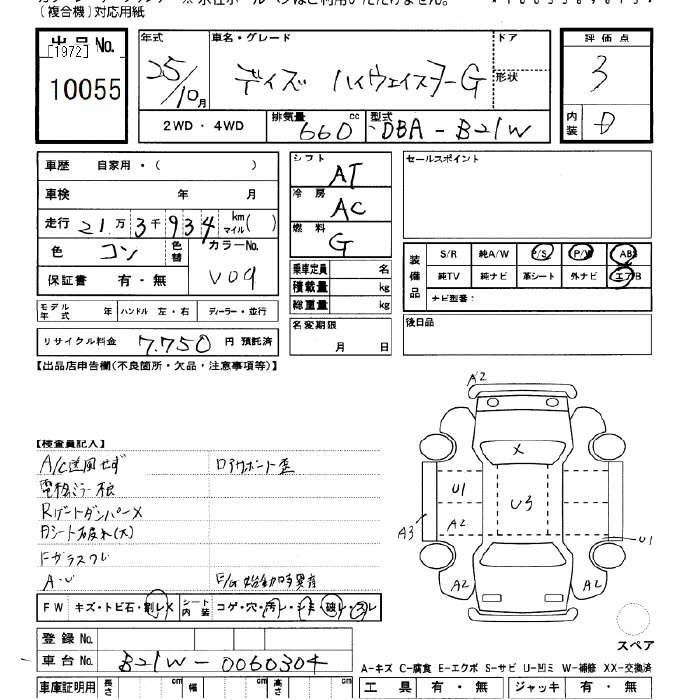 (複合機)対応用紙
出品No.
[1972]
10055
年式
25/10月
車名・グレード
デイズ ハイウェイスターG
ドア
形状
評価点
3
内装 D
2WD・4WD
排気量 660 cc
型式 DBA-B21W
車歴 自家用・( )
車検 年 月
走行 21万3千934 km マイル( )
色 コン 色替
カラーNo. V09
保証書 有・無
シフト AT
冷房 AC
燃料 G
乗車定員 名
積載量 kg
総重量 kg
セールスポイント
装備品
S/R 純A/W P/S P/W ABS
純TV 純ナビ 革シート 外ナビ エアB
ナビ型番:
モデル年式 年 ハンドル 左・右 ディーラー・並行
名変期限 月 日
後日品
リサイクル料金 7.750 円 預託済
【出品店申告欄(不良箇所・欠品・注意事項等)】
【検査員記入】
A/C送風せず
電格ミラー不良
Rゲートダンパー×
Dシート破れ(大)
Fガラスワレ
E/G始動時異音
FW キズ・トビ石・割レX シート内装 コゲ・穴・汚レ・シミ・破レ・スレ
A2
X
U1
U3
A2
A3
U1
A2
A2
スペア
登録No.
車台No. B21W-0060304
A-キズ C-腐食 E-エクボ S-サビ U-凹ミ W-補修 XX-交換済
車庫証明用 長さ cm 幅 cm 高さ cm
工具 有・無 ジャッキ 有・無